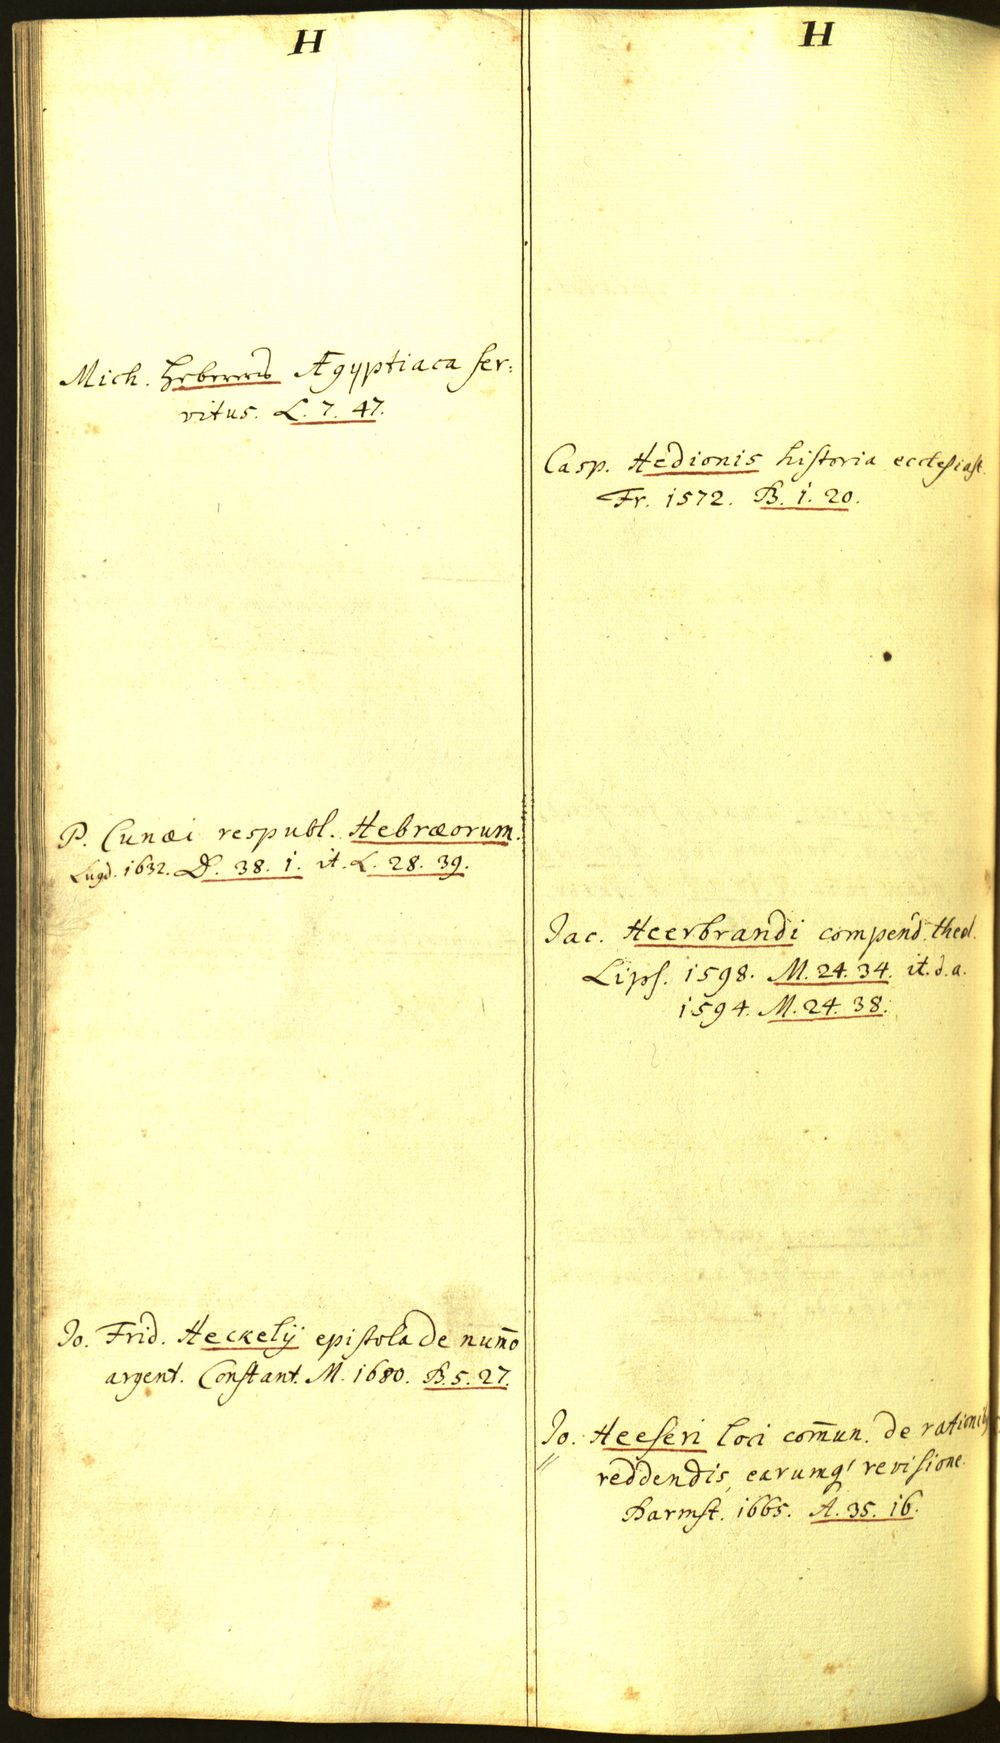 H
Mich. Heberers Ægyptiaca ser:
vitus. L. 7. 47.
P. Cunæi respubl. Hebræorum.
Lugd. 1632. D. 38. 1. it. L. 28. 39.
Jo. Frid. Heckelij epistola de num̄o
argent. Constant. M. 1680. B. 5. 27.
H
Casp. Hedionis historia ecclesiast.
Fr. 1572. B. 1. 20.
Jac. Heerbrandi compend. theol.
Lips. 1598. M. 24. 34. it. d. a.
1594. M. 24. 38.
Jo. Heeseri loci com̄un. de rationibus
reddendis, earumq' revisione
Darmst. 1665. A. 35. 16.